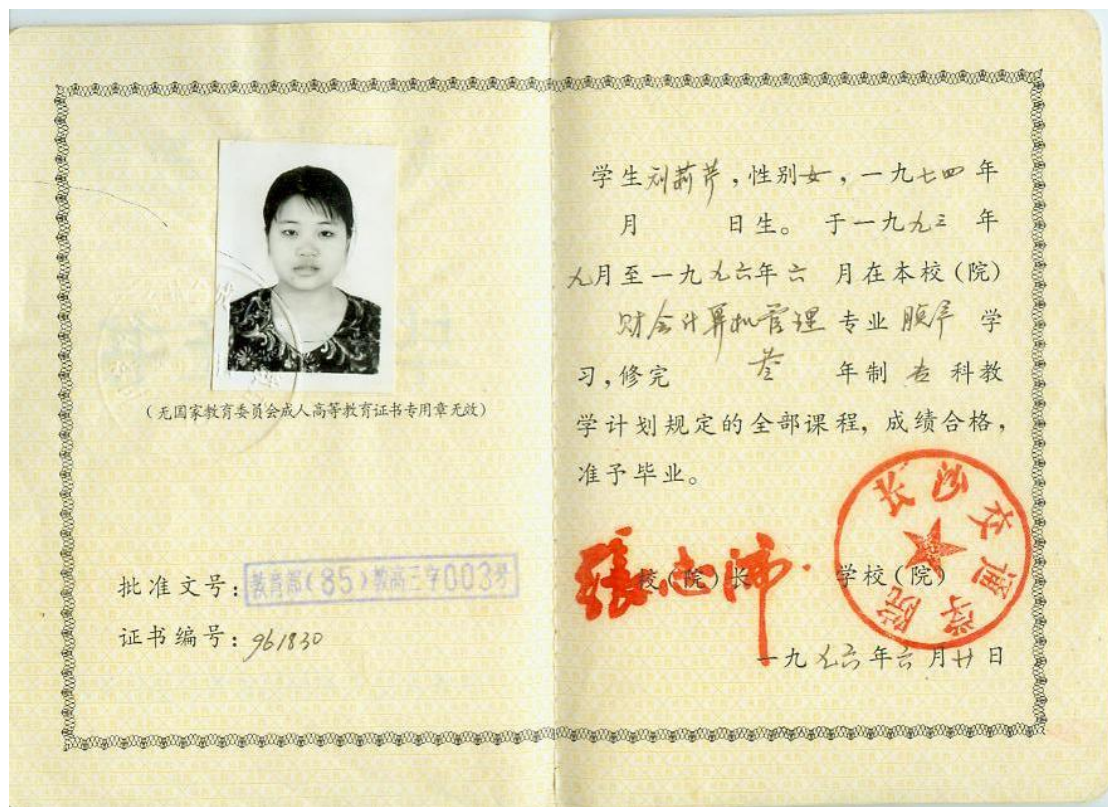 (无国家教育委员会成人高等教育证书专用章无效)
批准文号:教育部(85)教高三字003号
证书编号:961830
学生刘莉芹,性别女,一九七四年
月 日生。于一九九三 年
九月至一九九六年六 月在本校(院)
财会计算机管理 专业 脱产 学
习,修完 叁 年制 专 科教
学计划规定的全部课程,成绩合格,
准予毕业。
校(院)长 学校(院)
长沙交通学院
一九九六年六月廿日